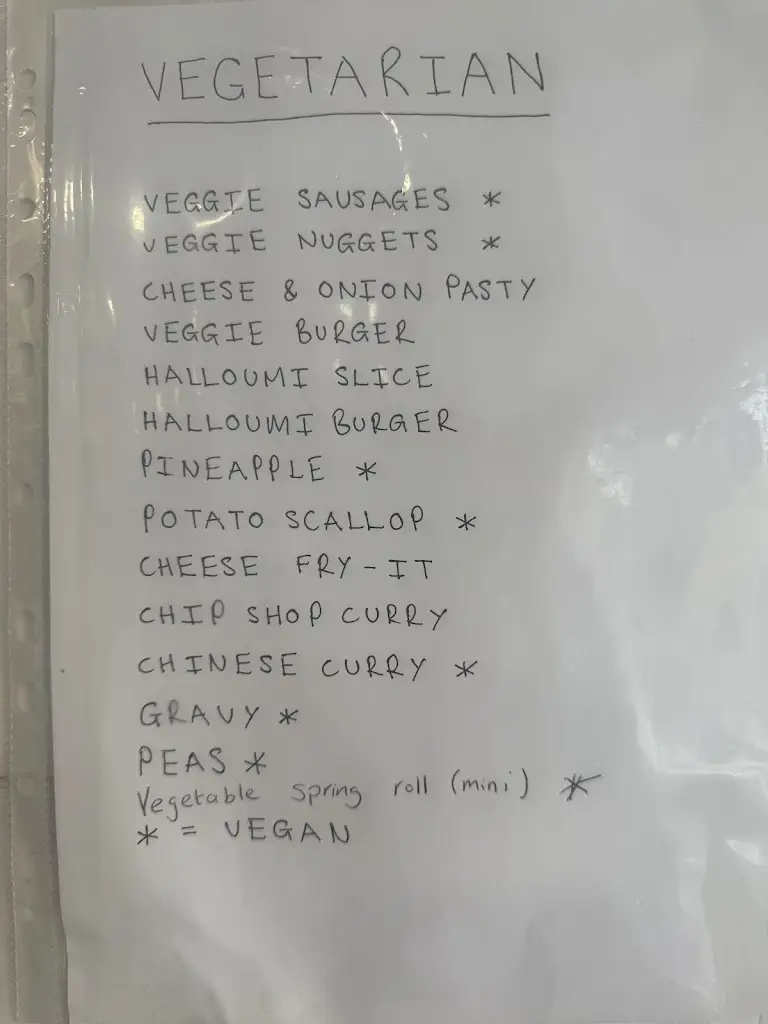 VEGETARIAN
VEGGIE SAUSAGES *
VEGGIE NUGGETS *
CHEESE & ONION PASTY
VEGGIE BURGER
HALLOUMI SLICE
HALLOUMI BURGER
PINEAPPLE *
POTATO SCALLOP *
CHEESE FRY-IT
CHIP SHOP CURRY
CHINESE CURRY *
GRAVY *
PEAS *
Vegetable spring roll (mini) *
* = VEGAN